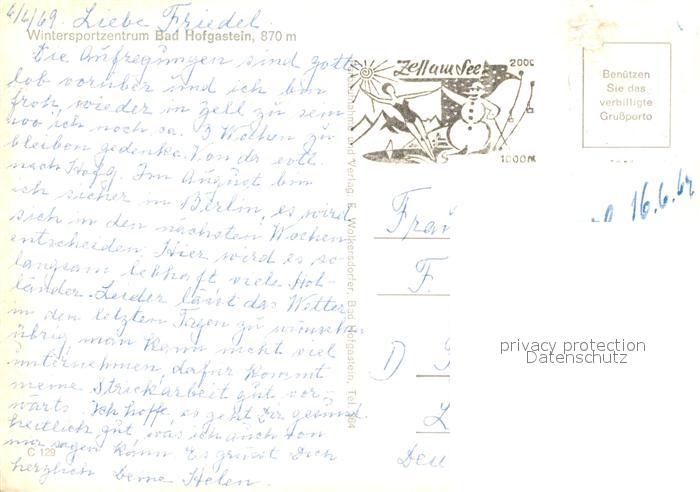 6/4/69. Liebe Friedel.
Wintersportzentrum Bad Hofgastein, 870 m
Die Aufregungen sind gott
lob vorüber und ich bin
froh, wieder in Zell zu sein
wo ich noch ca. 3 Wochen zu
bleiben gedenke. Von da evtl.
nach Hofg. Im August bin
ich sicher in Berlin, es wird
sich in den nächsten Wochen
entscheiden. Hier wird es so
langsam lebhaft viele Hol-
länder. Leider lässt das Wetter
in den letzten Tagen zu wünschen
übrig man kann nicht viel
unternehmen, dafür kommt
meine Strickarbeit gut vor-
wärts. Ich hoffe, es geht Dir gesund
heitlich gut, was ich auch von
mir sagen kann. Es grüsst Dich
herzlich Deine Helen.
C 129
Verlag R. Wolkersdorfer, Bad Hofgastein, Tel.
Zell am See
2000
1000m
Benützen
Sie das
verbilligte
Grußporto
16.6.69
Frau
F.
D
L
Deu
privacy protection
Datenschutz